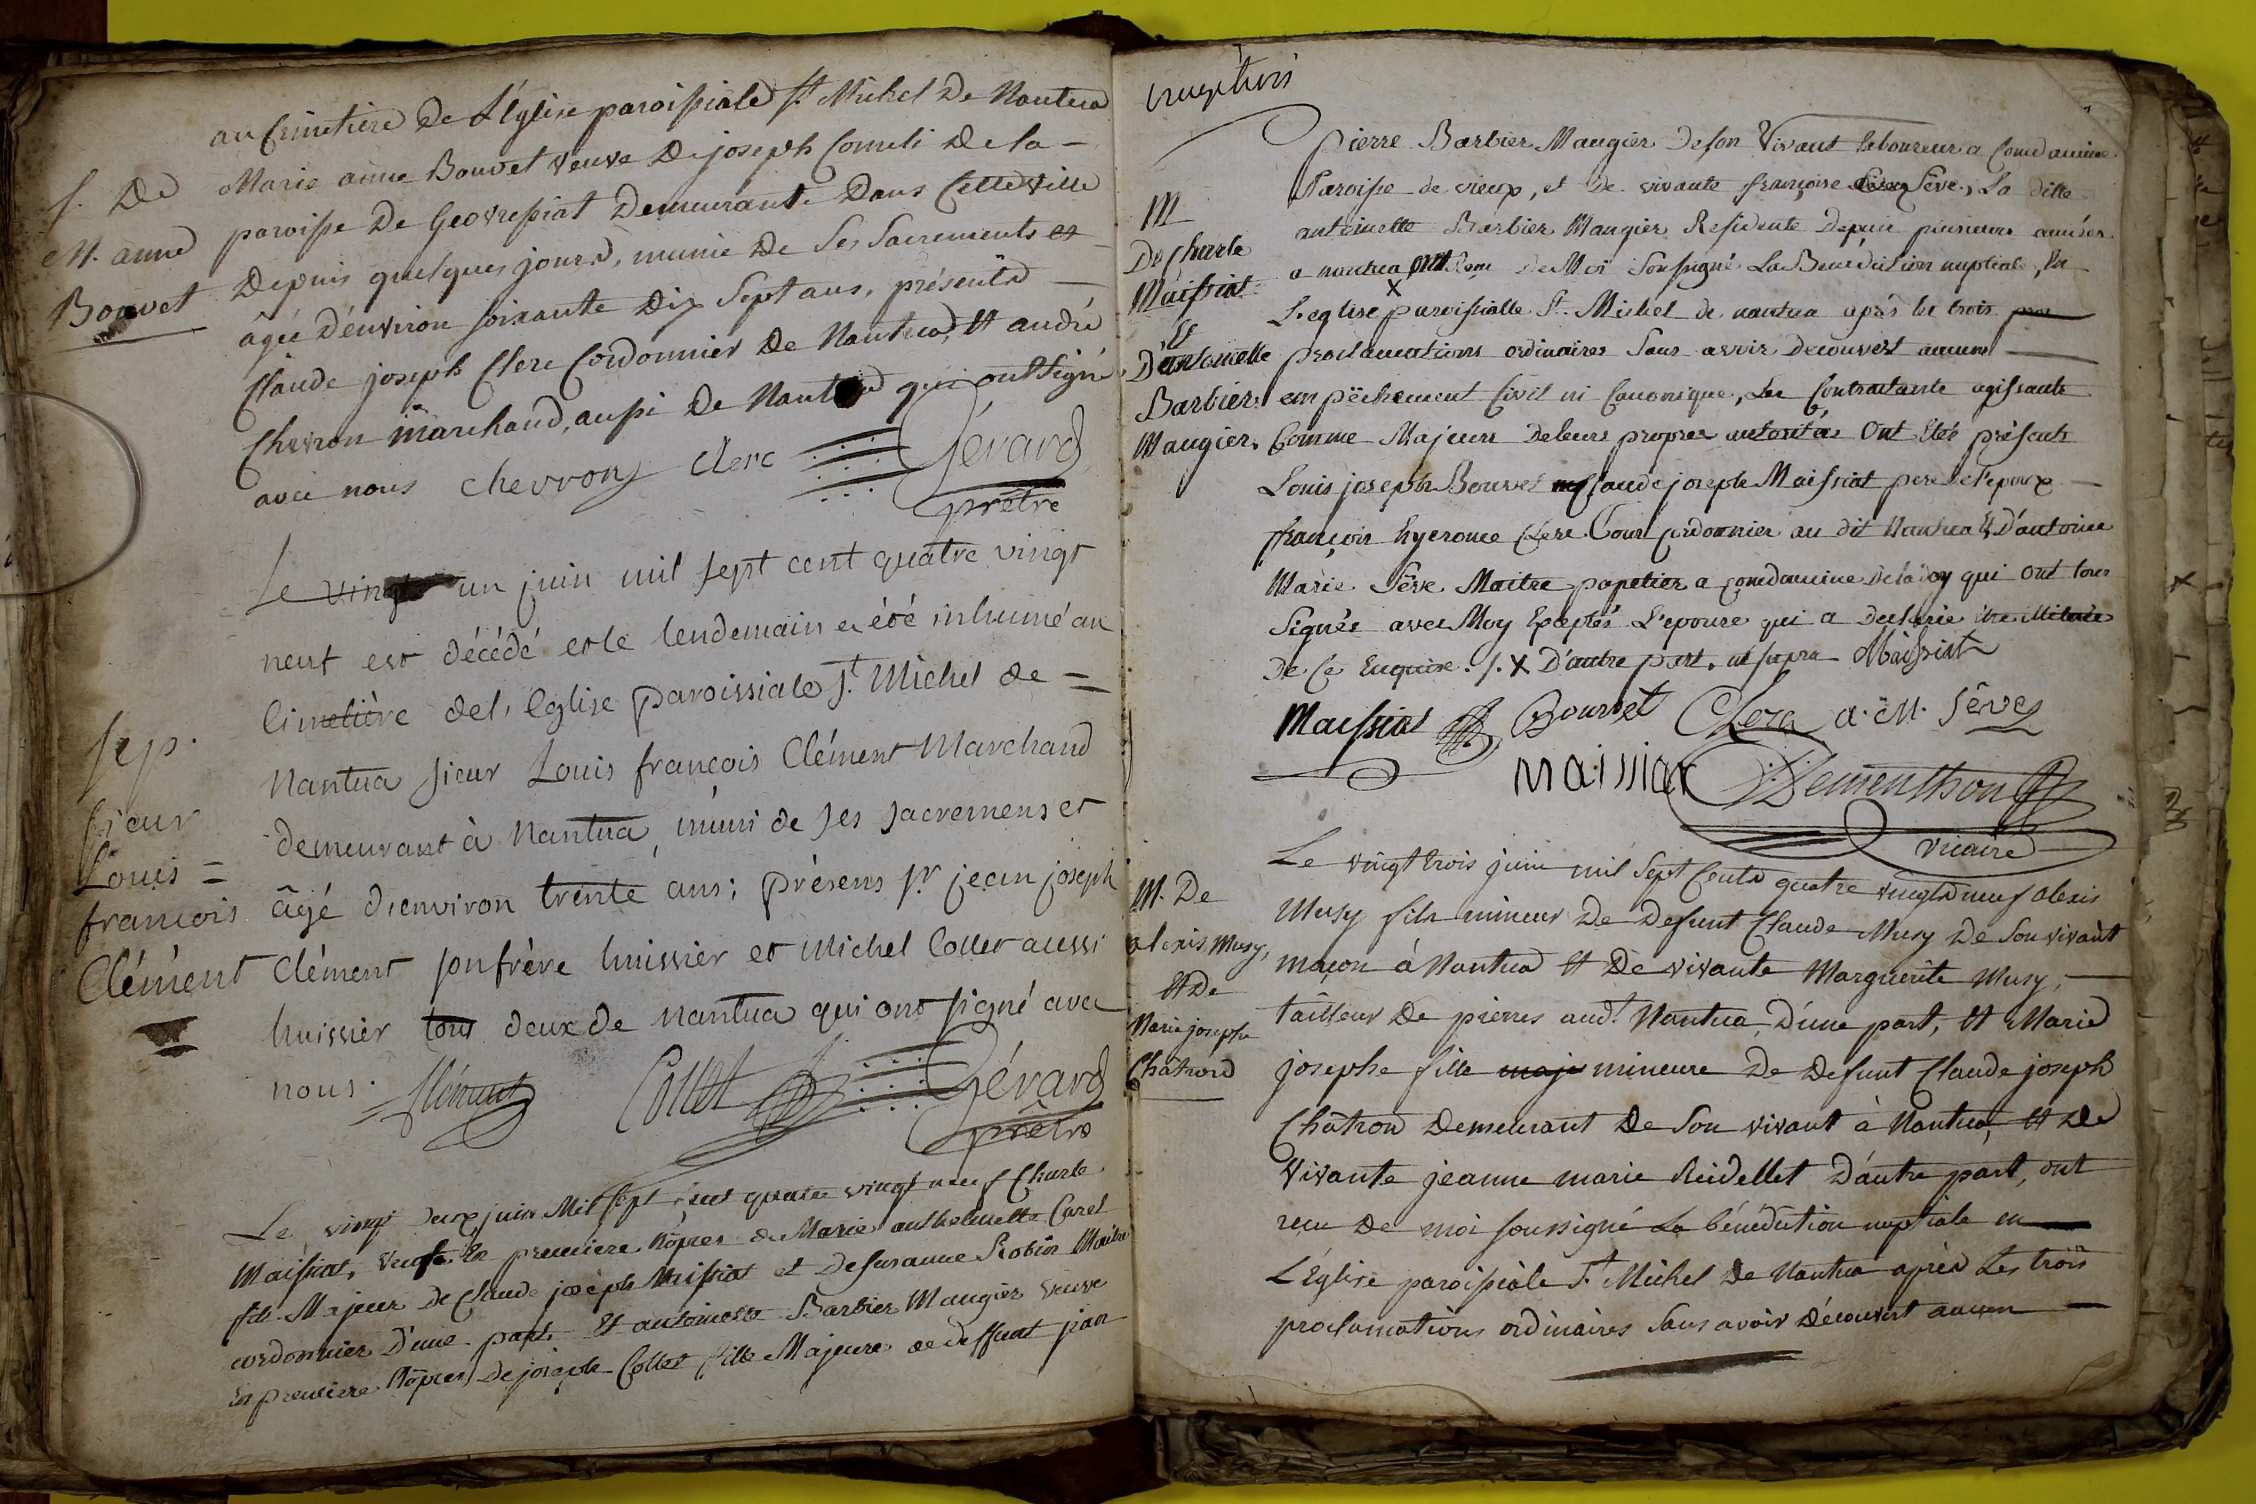 au Cimetiere De L'église paroissiale St Michel De Nantua
Marie anne Bouvet veuve De joseph Comeli De la
paroisse De Geovressiat Demeurante Dans Cette ville
Depuis quelques jours, munie De Ses Sacrements et
âgée D'environ soixante Dix Sept ans, présents
Claude joseph Clerc Cordonnier De Nantua, et andré
Chevron marchand, aussi De Nantua qui ont signé
avec nous chevron clerc Gérard
prêtre
S. De
M. anne
Bouvet
Le vingt un juin mil sept cent quatre vingt
neuf est décédé et le lendemain a été inhumé au
Cimetière de l'Eglise paroissiale St. Michel de =
Nantua sieur Louis françois Clément Marchand
demeurant à Nantua, muni de ses sacremens et
âgé d'environ trente ans; présens sr jean joseph
Clément son frère huissier et Michel Collet aussi
huissier tous deux de Nantua qui ont signé avec
nous. Clément Collet Gérard
prêtre
Sep.
sieur
Louis =
françois
Clément
Le vingt Deux juin Mil sept cent quatre vingt neuf Charle
Maissiat, veuf En premiere Nôpces de Marie anthelmette Carel
fils Majeur De Claude joseph Maissiat et De susanne Robin Maitre
cordonnier D'une part Et antoinette Barbier Maugier veuve
En premiere Nôpces De joseph Collet fille Majeure de deffunt jean
vingt trois
Pierre Barbier Maugier De son Vivant laboureur a Condamine
Paroisse de vieux, et De vivante françoise Sève, La ditte
antoinette Barbier Maugier Residente Depuis plusieurs années
a nantua ont Reçu De Moi Soussigné La Benediction nuptiale, En
L'eglise x paroissialle St. Michel de nantua après les trois
proclamations ordinaires Sans avoir decouvert aucun
empêchement Civil ni Canonique, Les Contractants agissants
Comme Majeurs De leurs propres autorités Ont Etés présents
Louis joseph Bouvet Claude joseph Maissiat pere de l'epoux
françois hyerome Clerc Tous cordonnier au dit Nantua Et D'antoine
Marie Sève Maitre papetier a Condamine De la Doy qui Ont tous
Signés avec Moy Exceptés L'epouse qui a declarée être illiterée
De Ce Enquise. /. x D'autre part. ut supra Maissiat
Maissiat Bouvet Clerc a. M. Sêve
Maissiat Dementhon
vicaire
M
De charle
Maissiat
Et
D'antoinette
Barbier
Maugier
Le vingt trois juin mil Sept Cents quatre vingts neuf alexis
Musy fils mineur De Defunt Claude Musy De Son vivant
maçon à Nantua Et De vivante Marguerite Musy,
tailleur De pierres aud.t Nantua, D'une part, Et Marie
josephe fille maje mineure De Defunt Claude joseph
Châtron Demeurant De Son vivant à Nantua, Et De
Vivante jeanne marie Reidellet D'autre part, ont
recu De moi soussigné La bénédiction nuptiale en
L'Eglise paroissiale St. Michel De Nantua après Les trois
proclamations ordinaires Sans avoir Découvert aucun
M. De
alexis Musy,
Et De
Marie josephe
Châtron